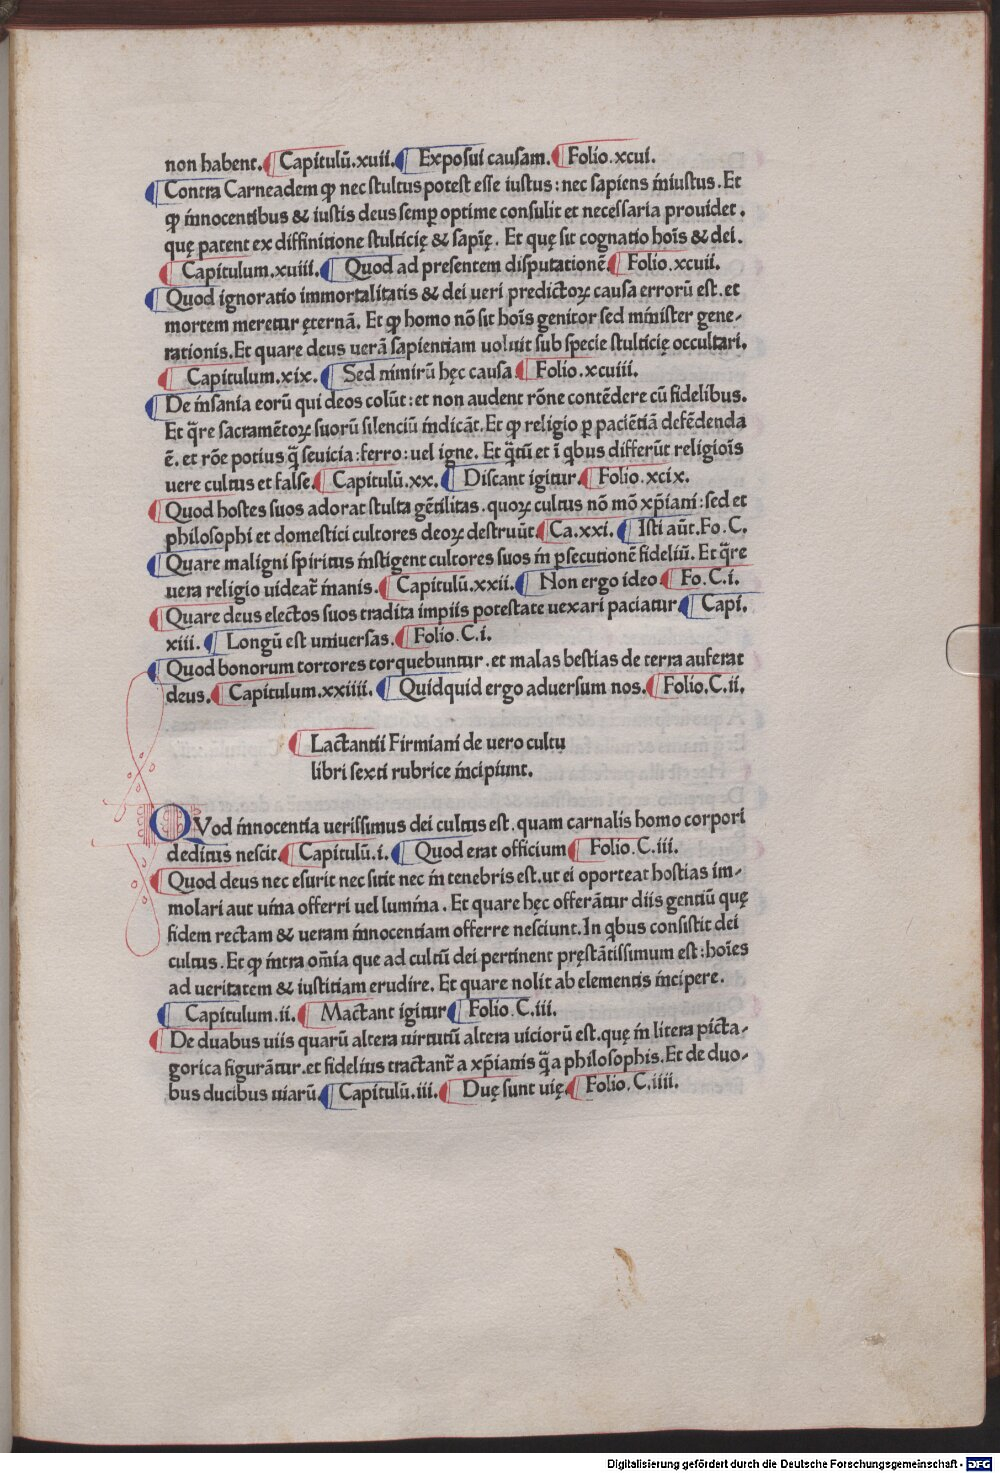 non habent. Capitulū.xvii. Exposui causam. Folio.xcvi.
Contra Carneadem ꝙ nec stultus potest esse iustus: nec sapiens iniustus. Et
ꝙ innocentibus & iustis deus semꝑ optime consulit et necessaria prouidet.
quę patent ex diffinitione stulticię & sapīę. Et quę sit cognatio hoīs & dei.
Capitulum.xviii. Quod ad presentem disputationē. Folio.xcvii.
Quod ignoratio immortalitatis & dei ueri predictoꝝ causa errorū est. et
mortem meretur ęternā. Et ꝙ homo nō sit hoīs genitor sed minister gene-
rationis. Et quare deus uerā sapientiam uoluit sub specie stulticię occultari.
Capitulum.xix. Sed nimirū hęc causa Folio.xcviii.
De insania eorū qui deos colūt: et non audent rōne contēdere cū fidelibus.
Et q̄re sacramētoꝝ suorū silenciū indicāt. Et ꝙ religio ꝑ paciētiā defēdenda
ē. et rōe potius q̄ seuicia: ferro: uel igne. Et q̄tū et ī qbus differūt religioīs
uere cultus et false. Capitulū.xx. Discant igitur. Folio.xcix.
Quod hostes suos adorat stulta gētilitas. quoꝝ cultus nō mō xp̄iani: sed et
philosophi et domestici cultores deoꝝ destruūt. Ca.xxi. Isti aūt. Fo.C.
Quare maligni spiritus instigent cultores suos in ꝑsecutionē fideliū. Et q̄re
uera religio uideat̄ inanis. Capitulū.xxii. Non ergo ideo Fo.C.i.
Quare deus electos suos tradita impiis potestate uexari paciatur. Capi.
xiii. Longū est uniuersas. Folio.C.i.
Quod bonorum tortores torquebuntur. et malas bestias de terra auferat
deus. Capitulum.xxiiii. Quidquid ergo aduersum nos. Folio.C.ii.
Lactantii Firmiani de uero cultu
libri sexti rubrice incipiunt.
QVod innocentia uerissimus dei cultus est. quam carnalis homo corpori
deditus nescit. Capitulū.i. Quod erat officium Folio.C.iii.
Quod deus nec esurit nec sitit nec in tenebris est. ut ei oporteat hostias im-
molari aut uina offerri uel lumina. Et quare hęc offerātur diis gentiū quę
fidem rectam & ueram innocentiam offerre nesciunt. In qbus consistit dei
cultus. Et ꝙ intra om̄ia que ad cultū dei pertinent pręstātissimum est: hoīes
ad ueritatem & iustitiam erudire. Et quare nolit ab elementis incipere.
Capitulum.ii. Mactant igitur Folio.C.iii.
De duabus uiis quarū altera uirtutū altera uiciorū est. quę in litera picta-
gorica figurātur. et fidelius tractant̄ a xp̄ianis q̄ a philosophis. Et de duo-
bus ducibus uiarū. Capitulū.iii. Duę sunt uię. Folio.C.iiii.
Digitalisierung gefördert durch die Deutsche Forschungsgemeinschaft - DFG